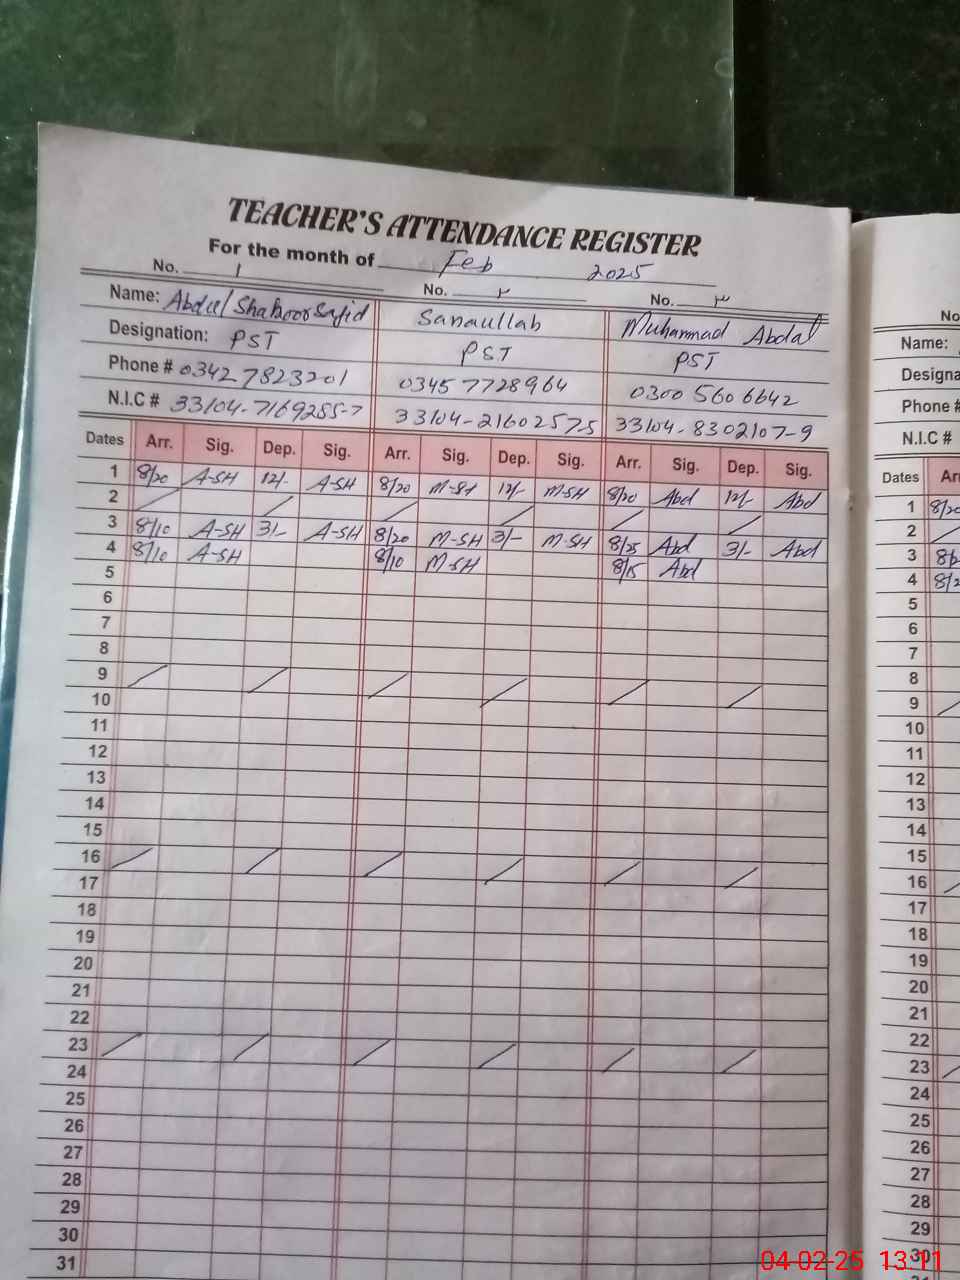 TEACHER'S ATTENDANCE REGISTER
For the month of Feb 2025
No. 1 No. ٢ No. ٣ No
Name: Abdul Shakoor Sajid Sanaullah Muhammad Abdal Name:
Designation: PST PST PST Designa
Phone # 03427823201 0345 7728964 0300 560 6642 Phone #
N.I.C # 33104-7169285-7 33104-21602575 33104-8302107-9 N.I.C #
Dates Arr. Sig. Dep. Sig. Arr. Sig. Dep. Sig. Arr. Sig. Dep. Sig. Dates Arr
1 8/20 A-SH 12/- A-SH 8/20 M-SH 12/- M-SH 8/20 Abd 12/- Abd 1 8/20
2 2
3 8/10 A-SH 3/- A-SH 8/20 M-SH 3/- M-SH 8/25 Abd 3/- Abd 3 8/2
4 8/10 A-SH 8/10 M-SH 8/15 Abd 4 8/2
5 5
6 6
7 7
8 8
9 9
10 10
11 11
12 12
13 13
14 14
15 15
16 16
17 17
18 18
19 19
20 20
21 21
22 22
23 23
24 24
25 25
26 26
27 27
28 28
29 29
30 30
31
04-02-25 13:11